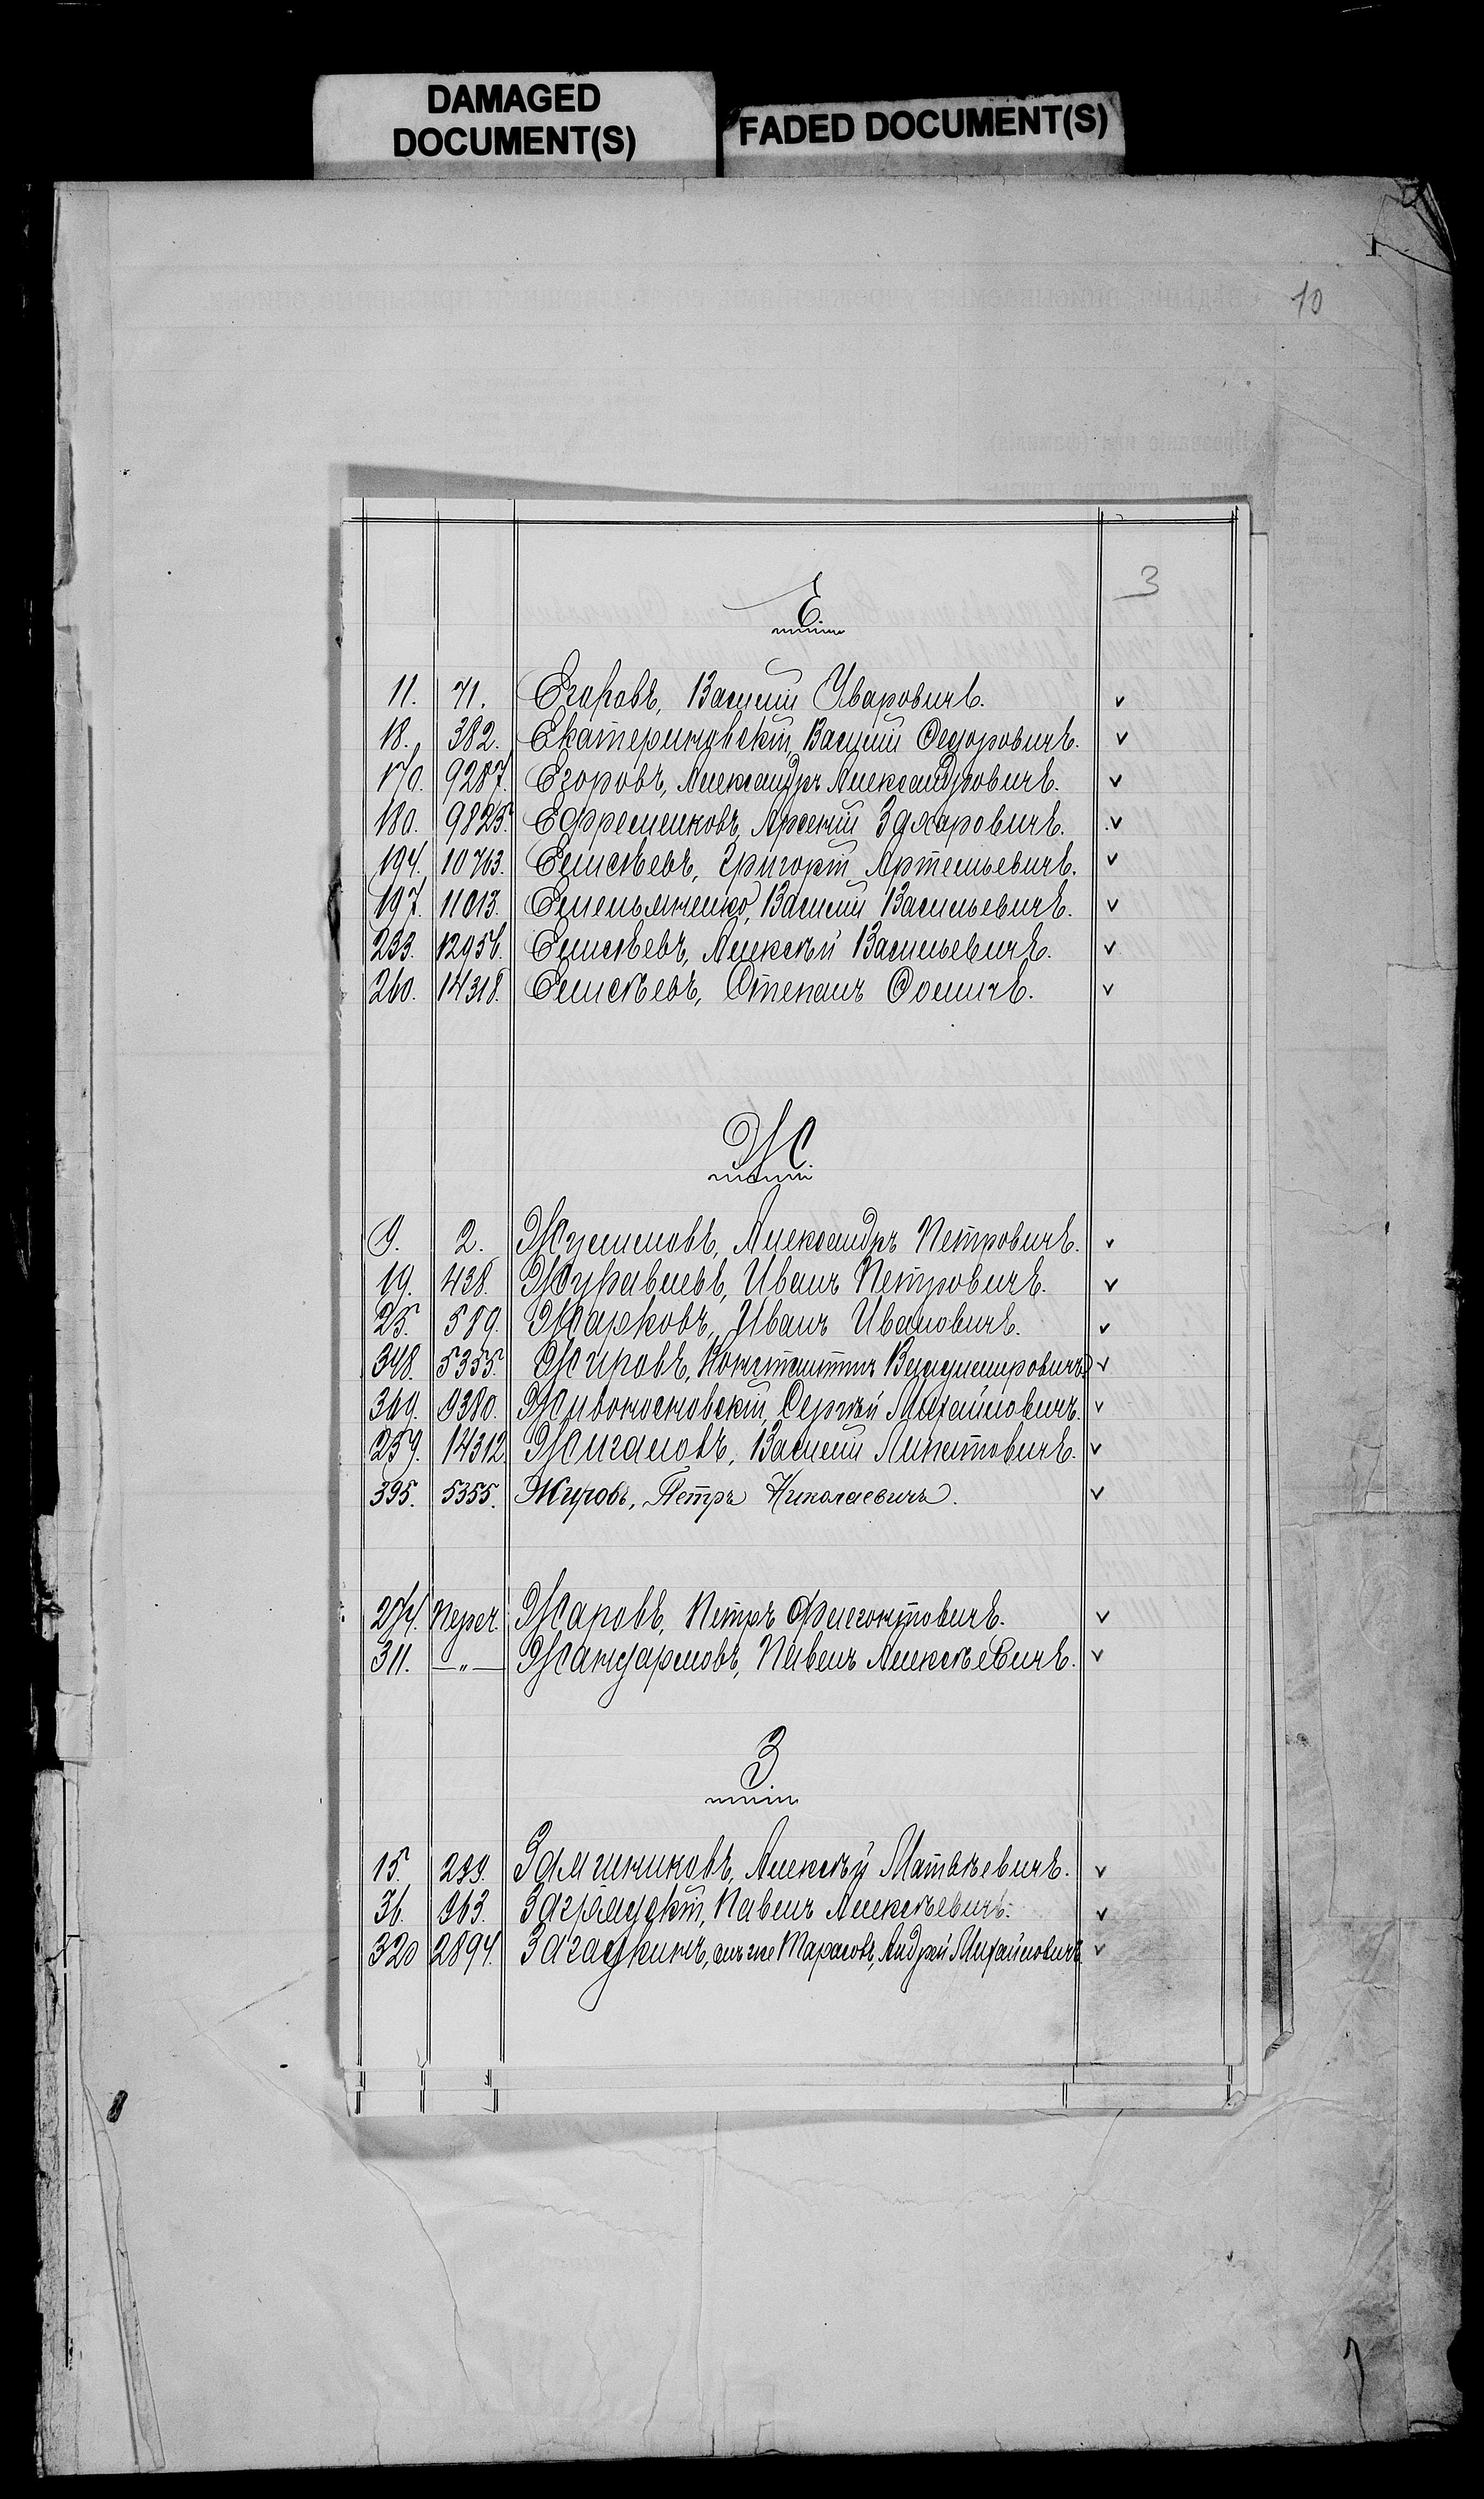 DAMAGED
DOCUMENT(S)
FADED DOCUMENT(S)
10
3
Е
11. 71. Егоровъ, Василій Уваровичъ. v
18. 382. Екатериновскій, Василій Ѳедоровичъ. v
170. 9287. Егоровъ, Александръ Александровичъ. v
180. 9825. Ефременковъ, Арсеній Захаровичъ. v
194. 10763. Елисѣевъ, Григорій Артемьевичъ. v
197. 11013. Емельяненко, Василій Васильевичъ. v
233. 12956. Елисѣевъ, Алексѣй Васильевичъ. v
260. 14318. Елисѣевъ, Степанъ Ѳомичъ. v
Ж
9. 2. Александръ Петровичъ. v
19. 438. Журавлевъ, Иванъ Петровичъ. v
25. 589. Жарковъ, Иванъ Ивановичъ. v
348. 5355. Жировъ, Константинъ Владимировичъ v
369. 9380. Живоносновскій, Сергѣй Михайловичъ. v
259. 14312 Жигаловъ, Василій v
395. 5355. Жировъ, Петръ Николаевичъ. v
274. Переч. Жаровъ, Петръ Флегонтовичъ. v
311. — " — Жандармовъ, Павелъ Алексѣевичъ. v
З
15. 299. Алексѣй Матвѣевичъ. v
36. 963. Загрядскій, Павелъ Алексѣевичъ. v
320 2894. Загадкинъ, онъ же Тарасовъ, Андрей Михайловичъ v